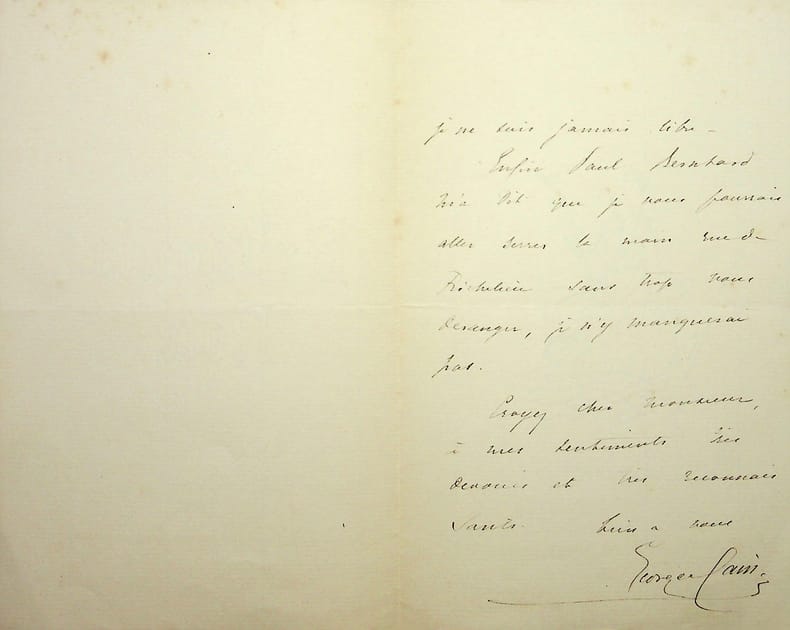 je ne suis jamais libre –
Enfin Paul Bernhard
m'a dit que je vous pourrais
aller serrer la main rue de
Richelieu sans trop vous
deranger, je n'y manquerai
pas.
Croyez cher Monsieur,
à mes sentiments très
devoués et très reconnais
sants. bien a vous
Georges Cain.